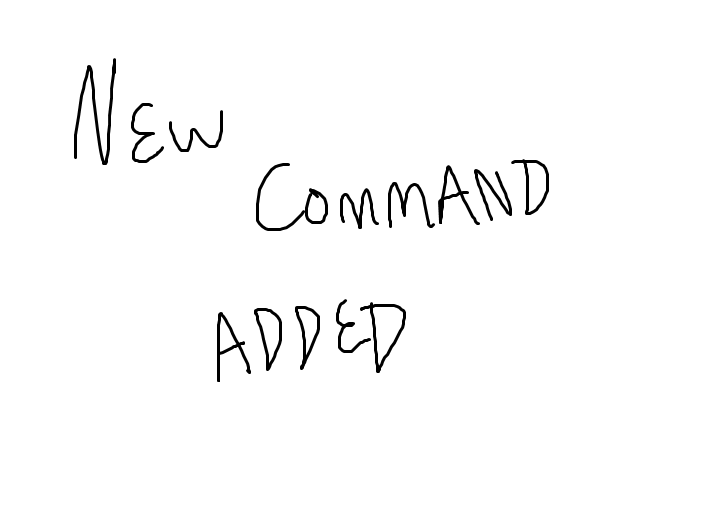 NEW
COMMAND
ADDED